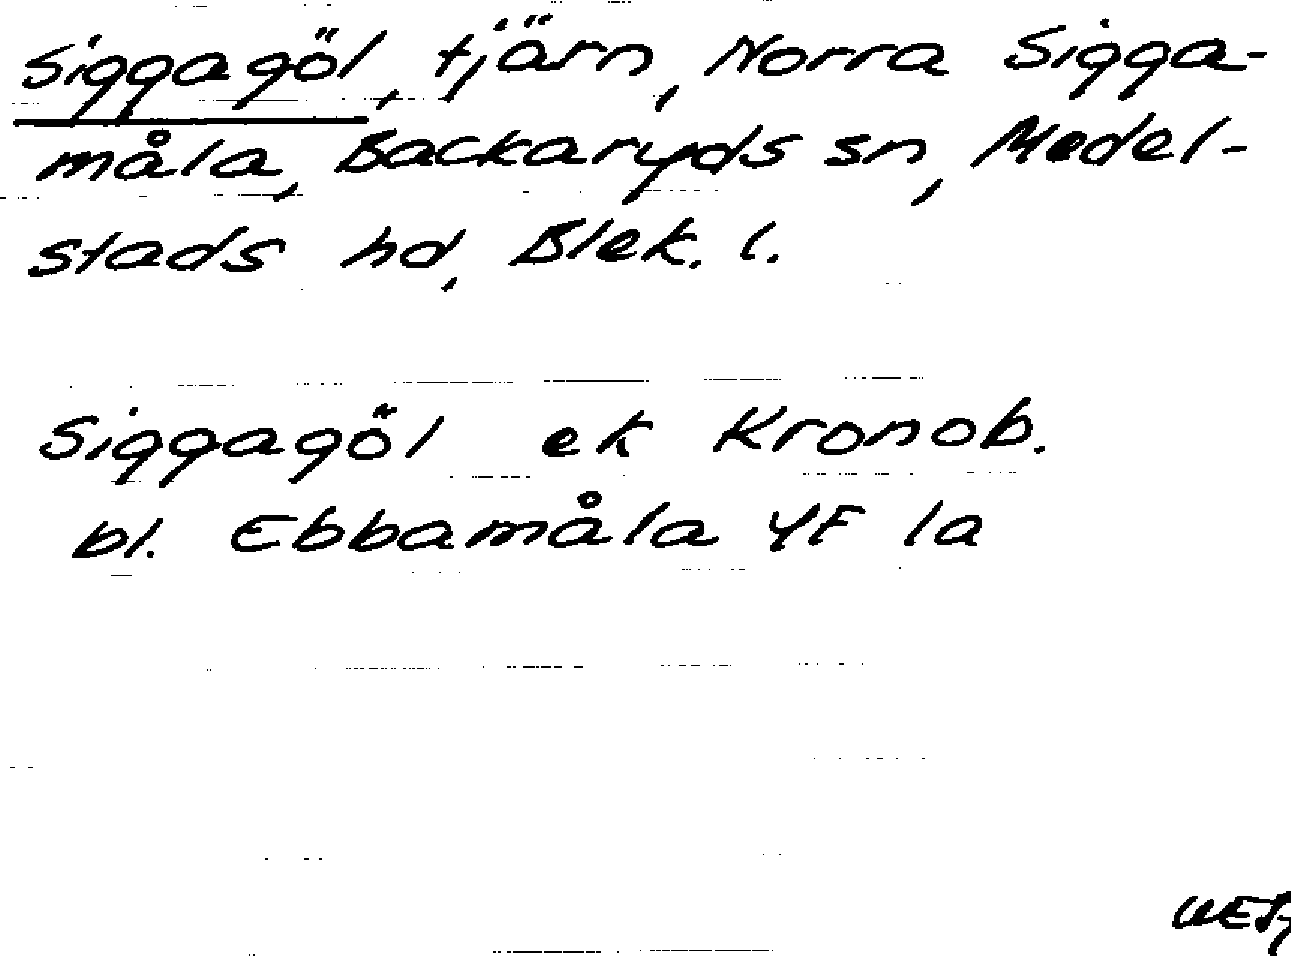 Siggagöl, tjärn, Norra Sigga-
måla, Backaryds sn, Medel-
stads hd, Blek. l.
Siggagöl ek Kronob.
bl. Ebbamåla 4F 1a